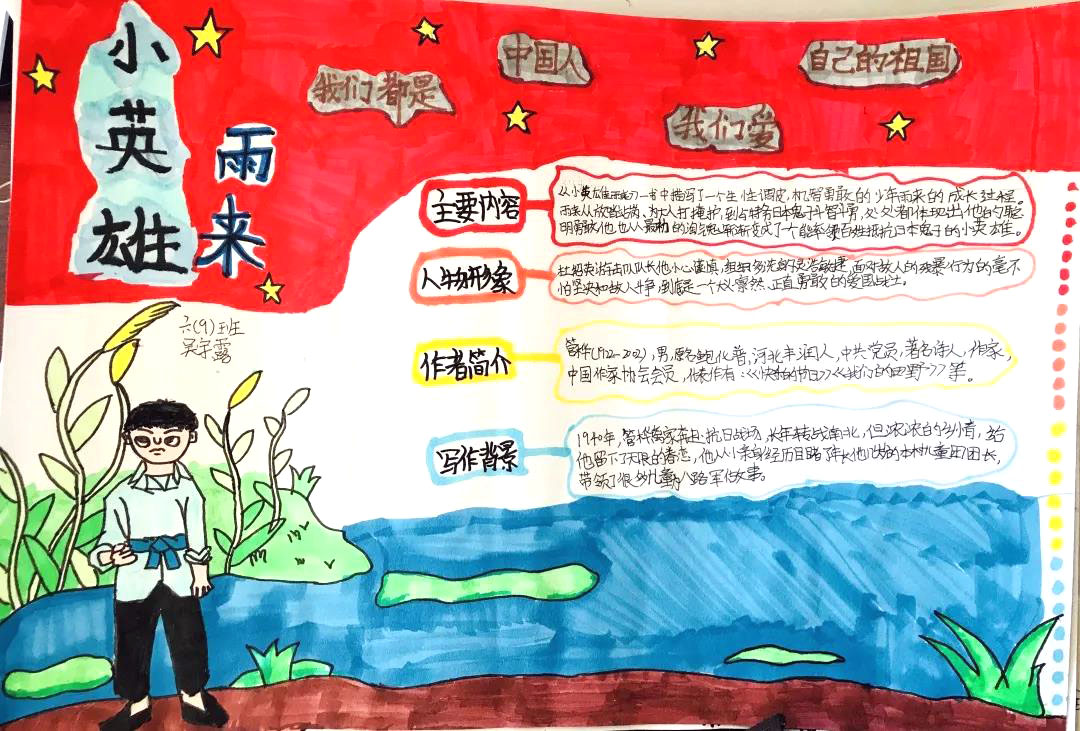 小英雄
雨来
我们都是
中国人
我们爱
自己的祖国
六(9)班
吴宇露
主要内容
从小英雄雨来一书中描写了一个生性调皮,机智勇敢的少年雨来的成长过程。
雨来从放哨站岗、为大人打掩护,到后来和日本鬼子斗智斗勇,处处都体现出他的聪
明勇敢,他也从最初的淘气包渐渐变成了一个能率领百姓抵抗日本鬼子的小英雄。
人物形象
杜绍英游击队队长他小心谨慎,组织务实的灵活敏捷,面对敌人的残暴行为的毫不
怕坚决和敌人斗争,到底是一个大义凛然、正直勇敢的爱国战士。
作者简介
管桦(1922-2002),男,原名鲍化普,河北丰润人,中共党员,著名诗人,作家,
中国作家协会会员,代表作有:《快乐的节日》《我们的田野》等。
写作背景
1940年,管桦离家奔赴抗日战场,长年转战南北,但浓浓的乡情,给
他留下了无限的眷恋,他从小亲身经历目睹了年长他几岁的本村儿童团团长,
带领了很多儿童为八路军做事。